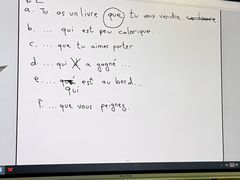 a. Tu as un livre que tu veux vendre
b. ... qui est peu calorique.
c. ... que tu aimes porter
d. ... qui a gagné ...
e. ... est au bord ...
qui
f. ... que vous peignez.